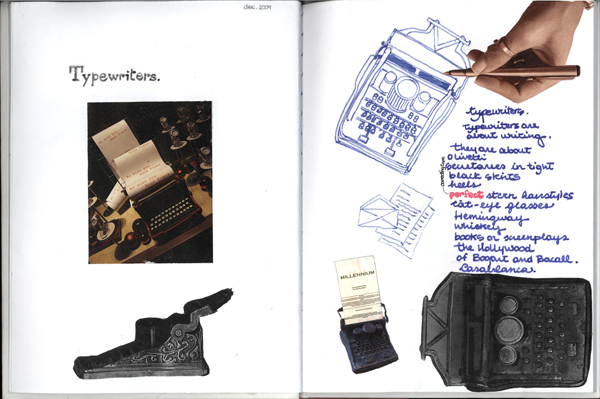 dec. 2009
Typewriters.
typewriters.
typewriters are
about writing.
they are about
Olivetti
secretaries in tight
black skirts
heels
perfect stern hairstyles
cat-eye glasses
Hemingway
whiskey
books or screenplays
the Hollywood
of Bogart and Bacall.
Casablanca
MILLENNIUM